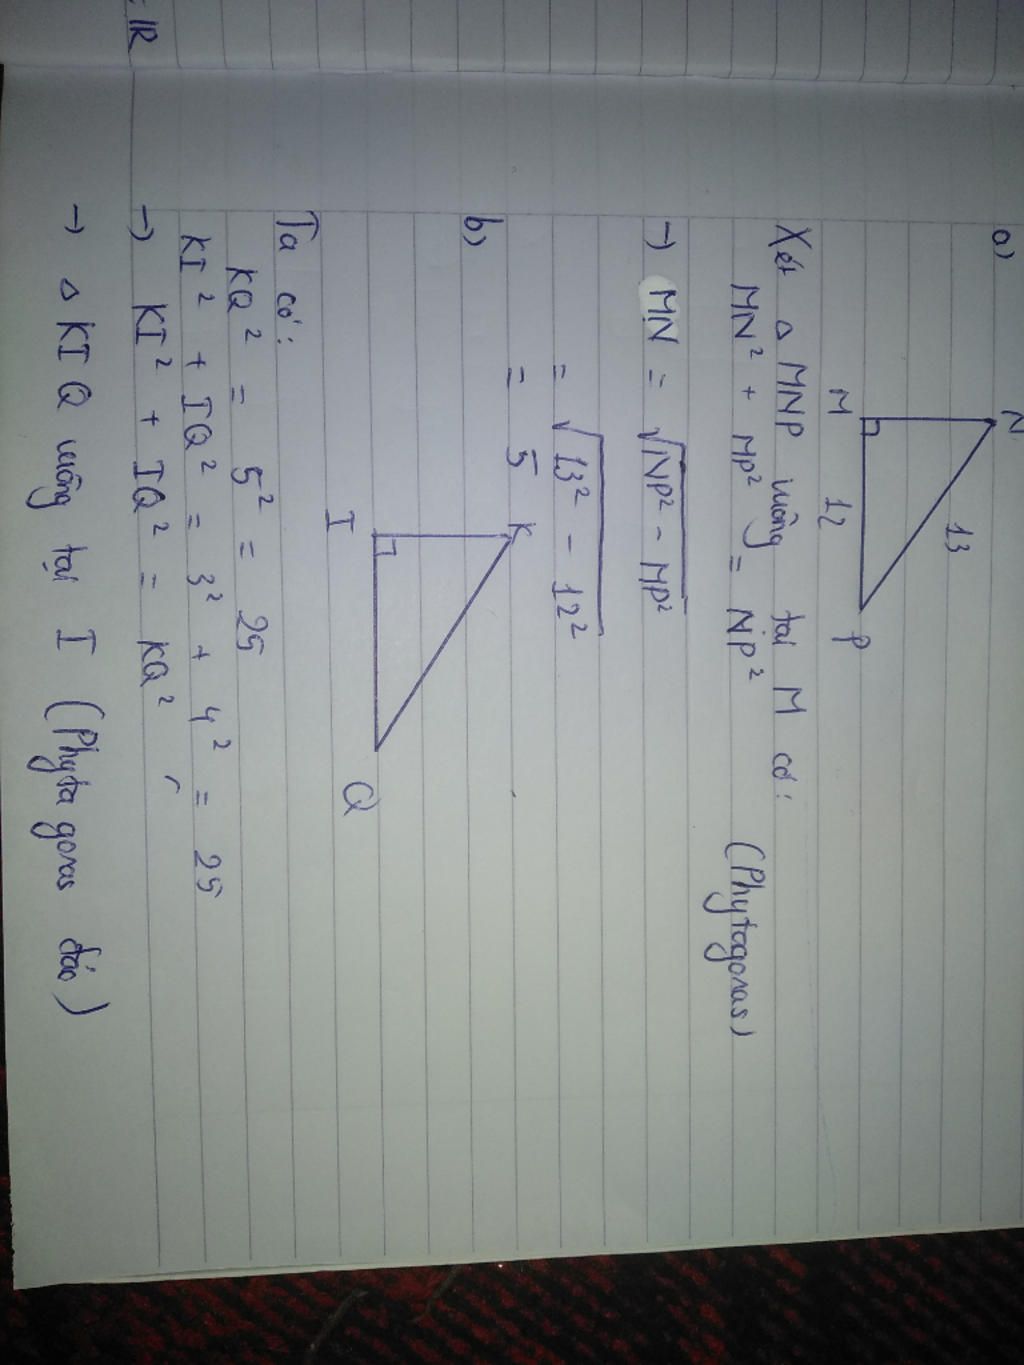 : IR
a)
N
13
M
12
P
Xét △ MNP vuông tại M có:
MN² + MP² = NP² (Phytagoras)
→ MN = √NP² - MP²
= √13² - 12²
= 5
b)
K
I
Q
Ta có:
KQ² = 5² = 25
KI² + IQ² = 3² + 4² = 25
→ KI² + IQ² = KQ²
→ △ KIQ vuông tại I (Phytagoras đảo)